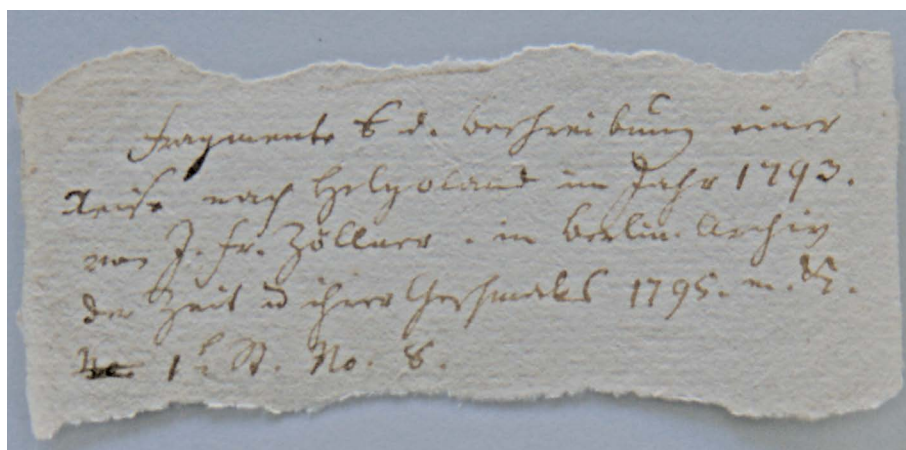 Fragmente d. Beschreibung einer
Reise nach Helgoland im Jahr 1793.
von J. Fr. Zöllner. in Berlin. Archiv
der Zeit u ihres Geschmaks 1795. m.
1. St. No. 8.